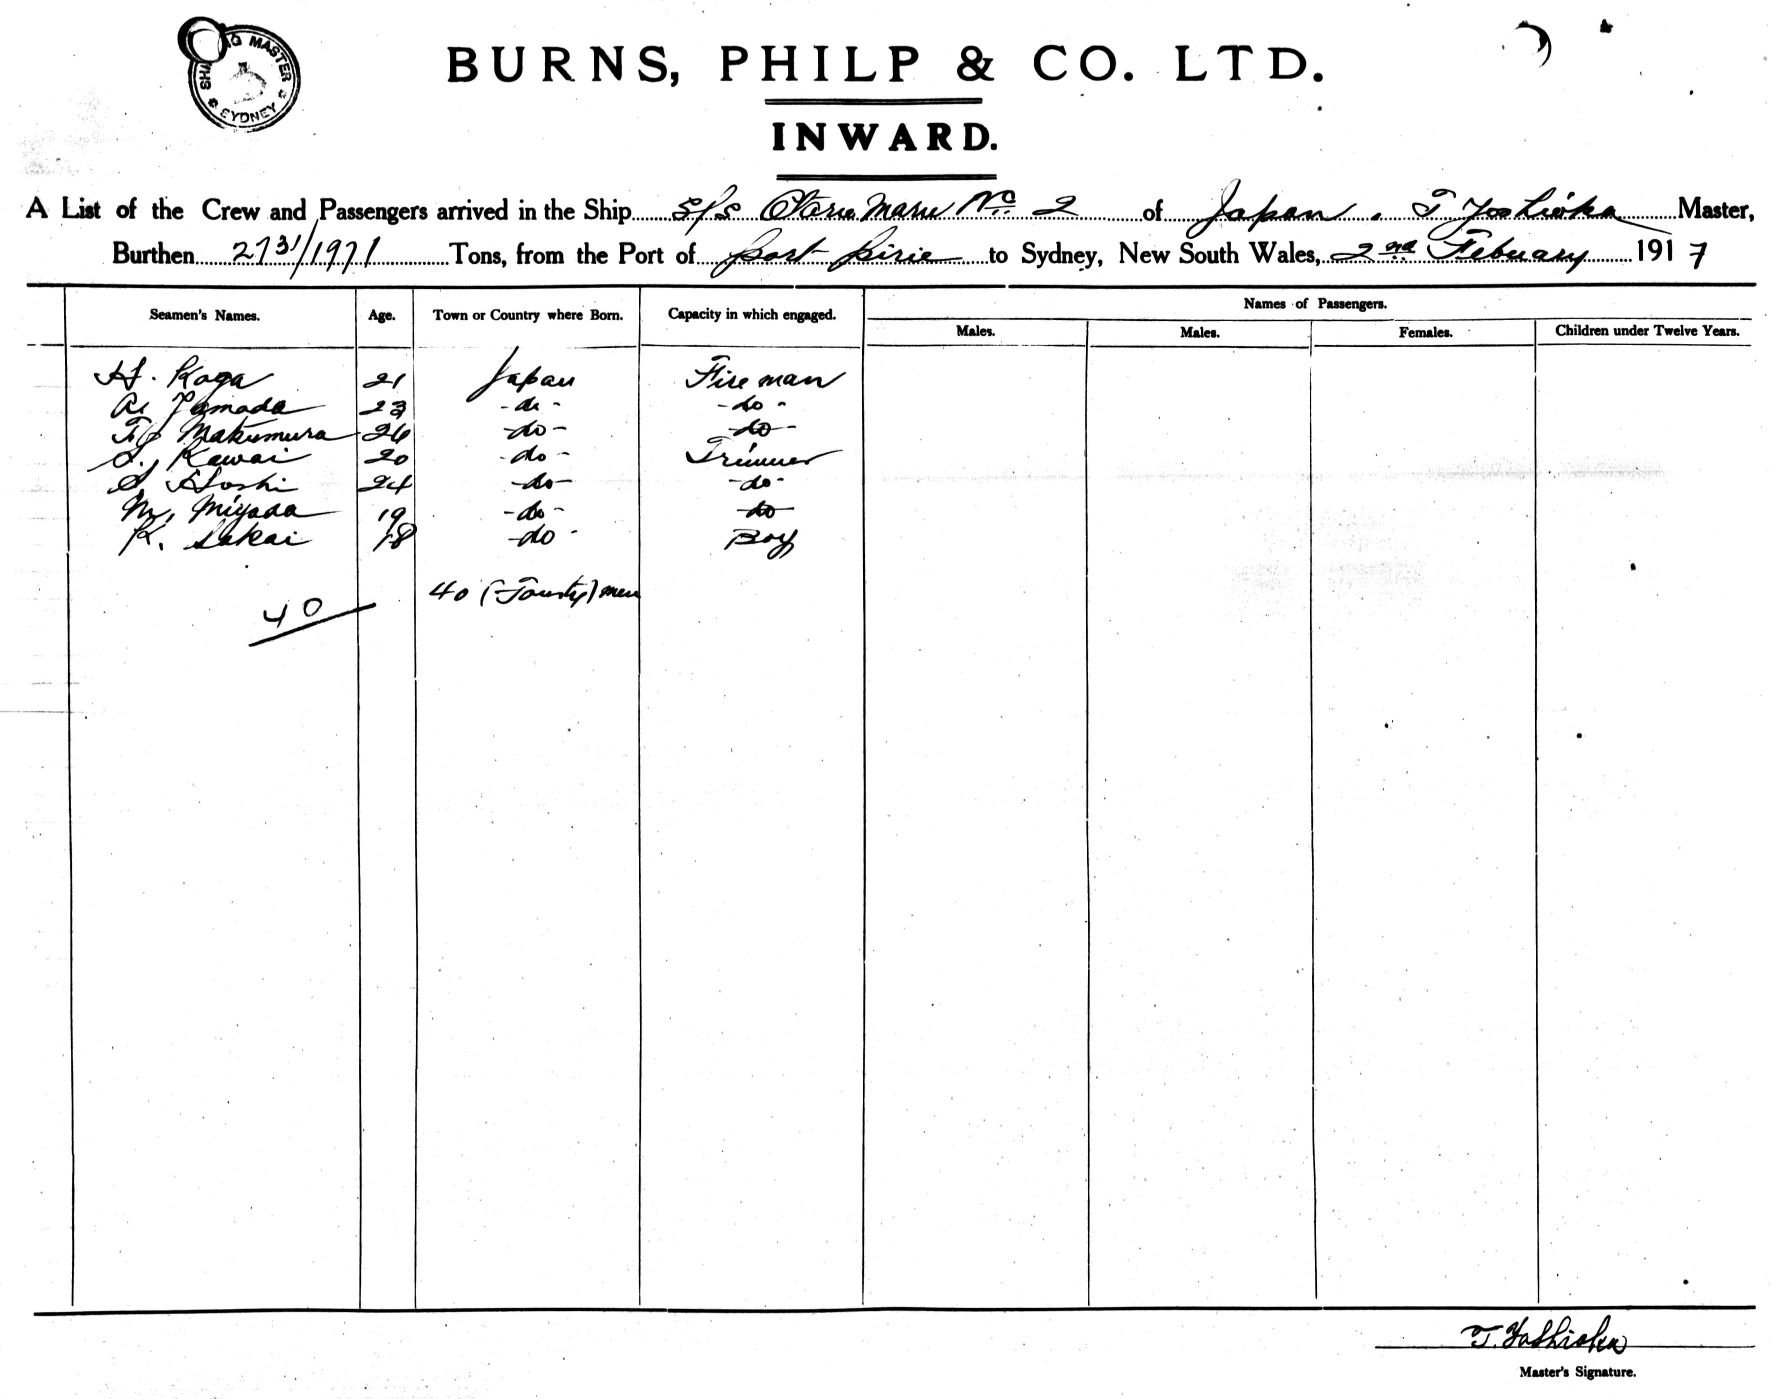 SHIPPING MASTER SYDNEY
BURNS, PHILP & CO. LTD.
INWARD.
A List of the Crew and Passengers arrived in the Ship S/S Otaru Maru No. 2 of Japan. T Yoshioka Master,
Burthen 2731/1971 Tons, from the Port of Port Pirie to Sydney, New South Wales, 2nd Febuary 1917
Seamen's Names. Age. Town or Country where Born. Capacity in which engaged. Names of Passengers.
Males. Males. Females. Children under Twelve Years.
H. Koga 21 Japan Fireman
Yamada 23 - do - - do -
Makumura 26 - do - - do -
Kawai 20 - do - Trimmer
S Hoshi 24 - do - - do -
M. Miyada 19 - do - - do -
K. Sakai 18 - do - Boy
40 40 (Fourty) men
T. Yoshioka
Master's Signature.